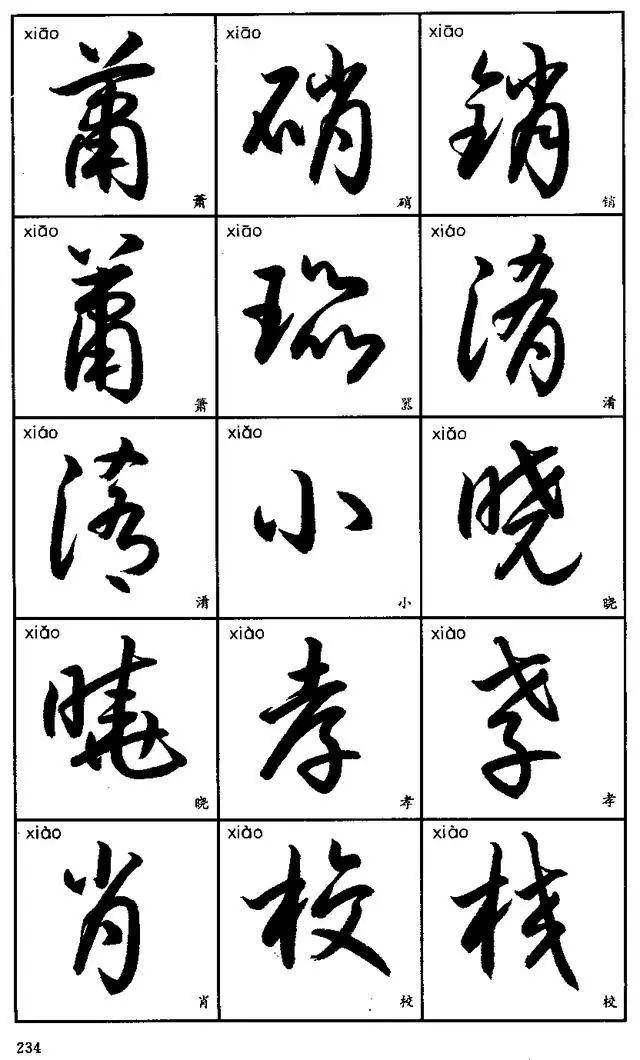 xiāo xiāo xiāo
萧 硝 销
萧 硝 销
xiāo xiāo xiáo
箫 嚣 淆
箫 嚣 淆
xiáo xiǎo xiǎo
淆 小 晓
淆 小 晓
xiǎo xiào xiào
晓 孝 孝
晓 孝 孝
xiào xiào xiào
肖 校 校
肖 校 校
234